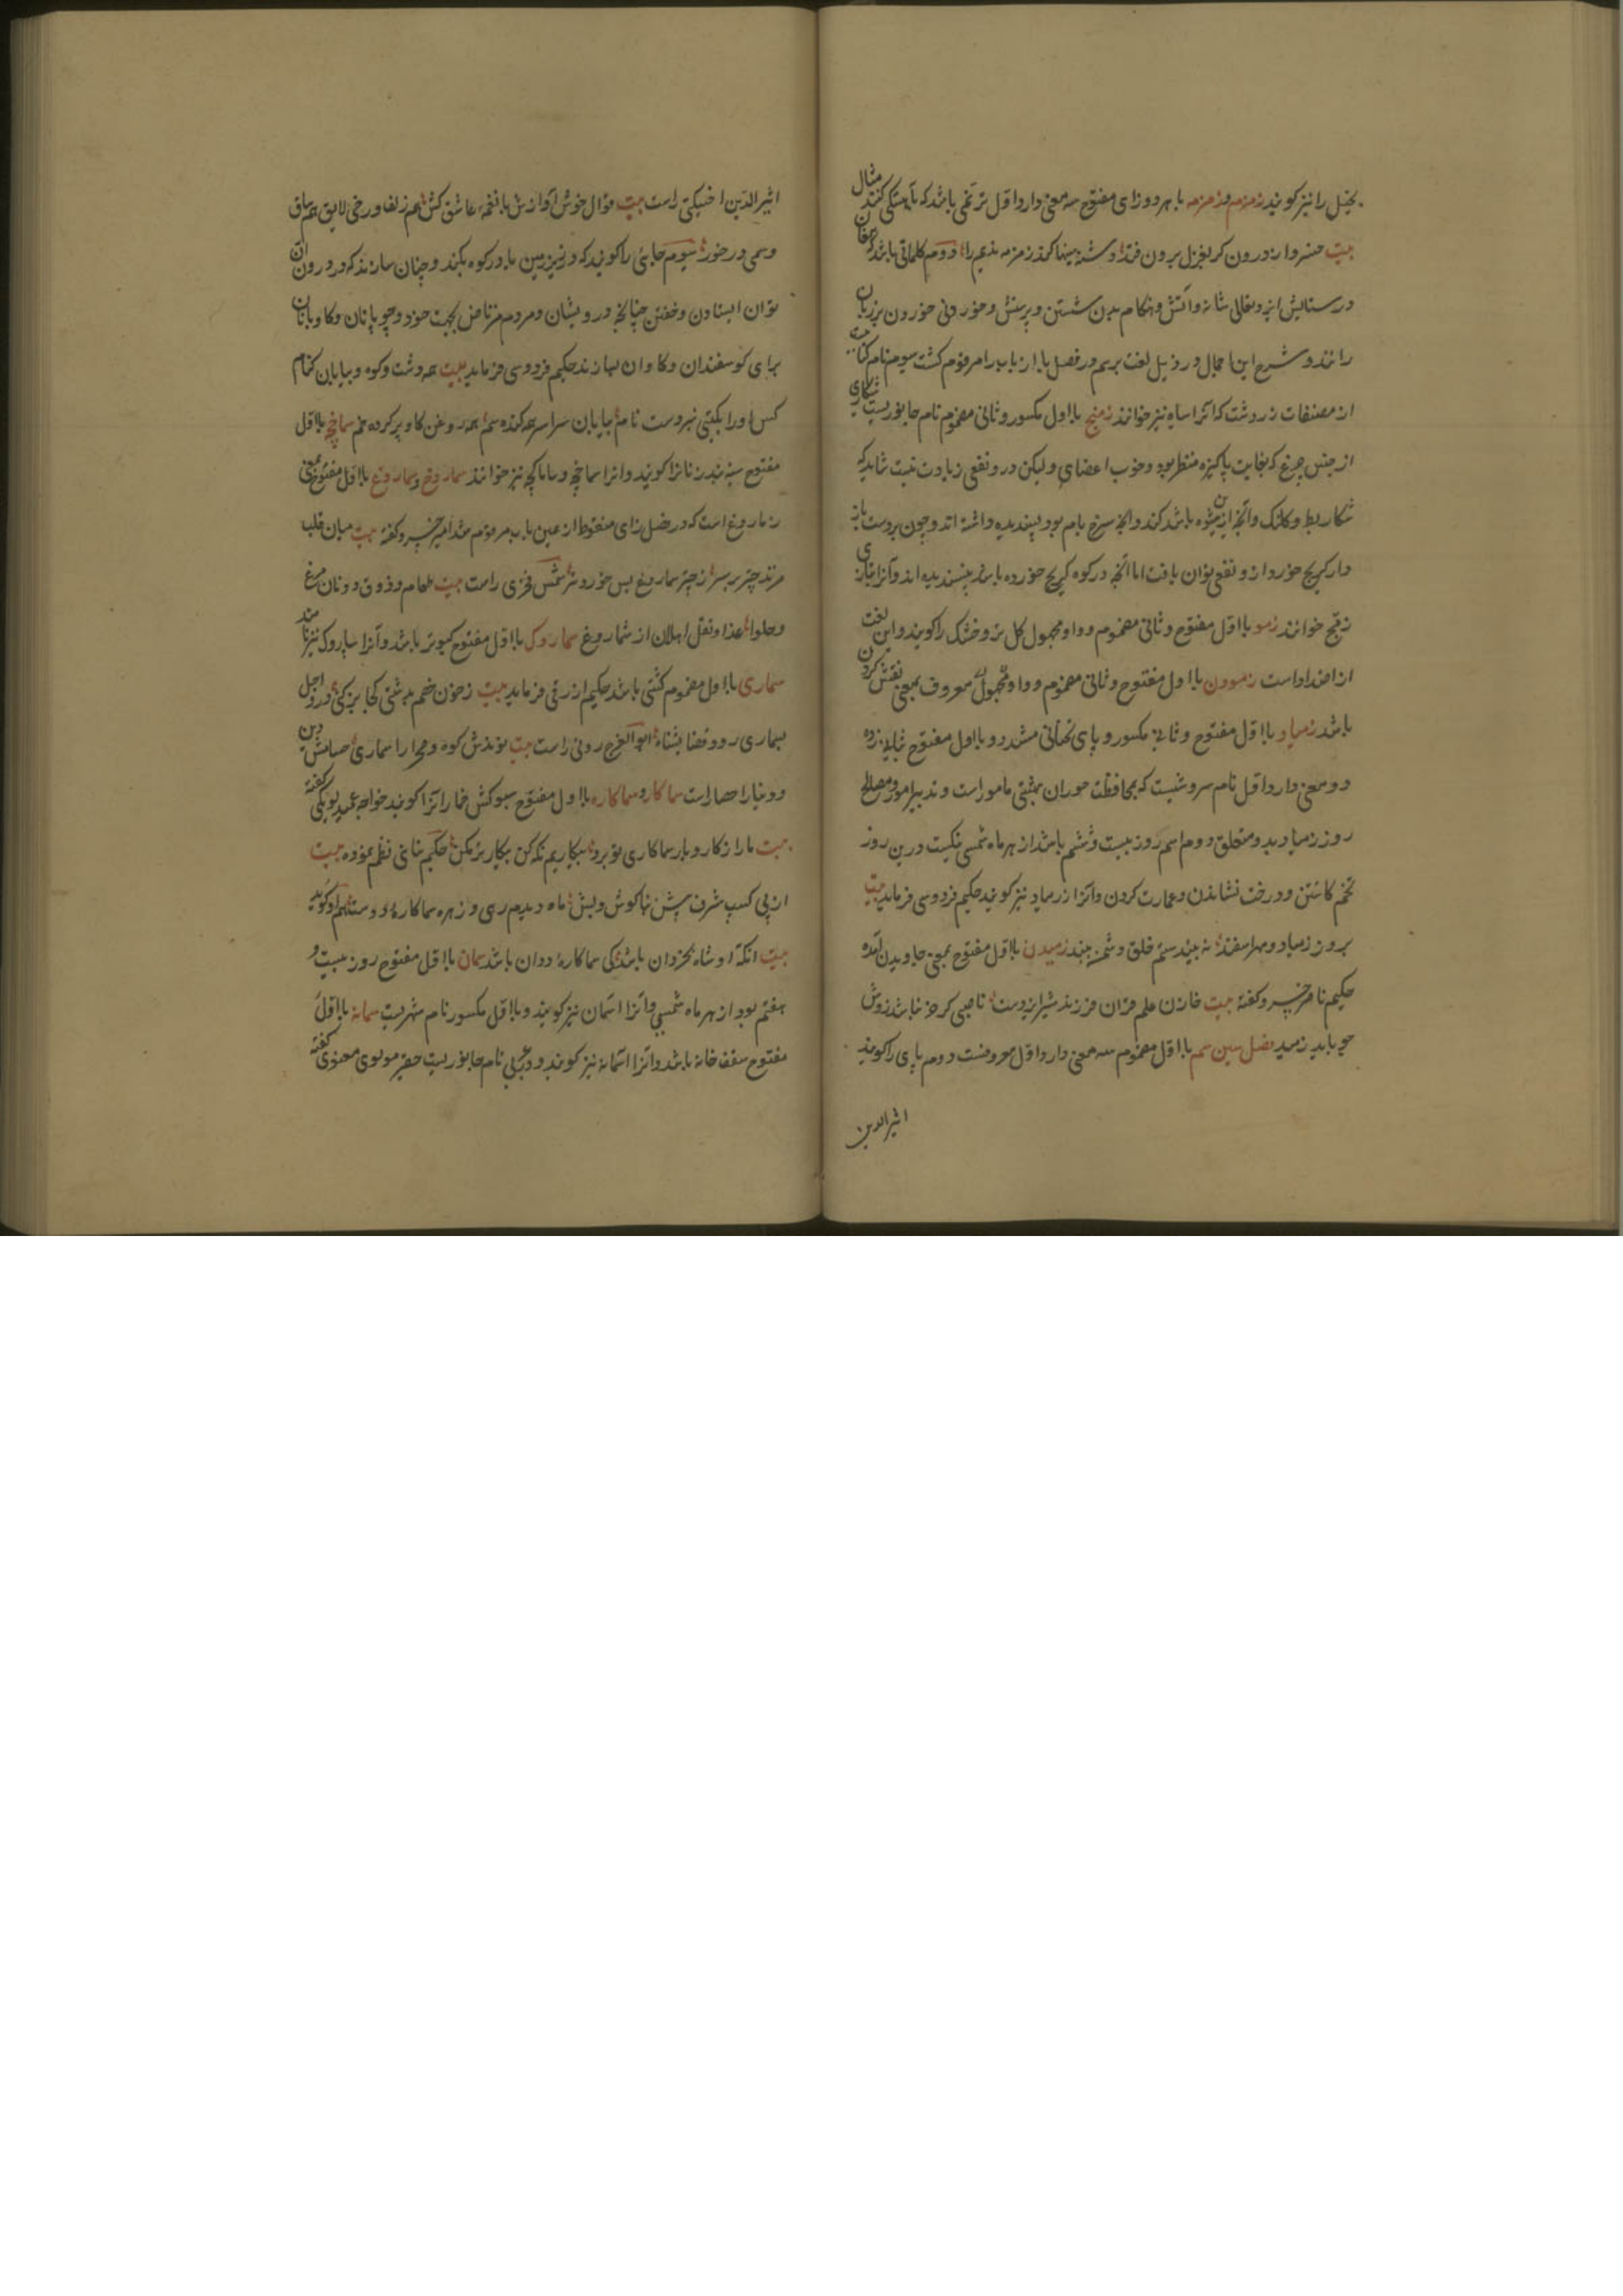 بخیل را نیز گویند زمزم و زمزمه با هر دو زای مفتوح سه معنی دارد اول ترنمی باشد که بآهستگی کنند مثال
بیت خسرو از درون گر بغزل برون فتد زمزمه ندیم را دوم کلماتی باشد که مغان
در ستایش ایزد تعالی شانه و آتش و هنگام بدن شستن و پرستش و خوردنی خوردن بر زبان
رانند و شرح این اجمال در ذیل لغت برسم در فصل با از باب را مرقوم گشت سیوم نام کتابیست
از مصنفات زردشت که آنرا ساه نیز خوانند زمنج با اول مکسور و ثانی مضموم نام جانوریست شکاری
از جنس چرغ که بغایت پاکیزه منظر بود و خوب اعضای ولیکن درو نفعی زیادت نیست شاید که
شکار بط و کلنک و آنچه ازین شوه باشد کند و آنچه سرخ بام بود پسندیده داشته اند و چون بر دست باز
دار کریج خورد ازو نفعی توان یافت اما آنچه در کوه کریج خورده باشد پسندیده اند و آنرا بتازی
زمج خوانند زمو با اول مفتوح و ثانی مضموم و واو مجهول گل تر و خشک را گویند و این لغت
از اضداد است زمودن با اول مفتوح و ثانی مضموم و واو مجهول معروف بمعنی نقش کردن
باشد زمیاد با اول مفتوح و ثانی مکسور و یای تحتانی مشدد و با اول مفتوح بثانی زده
دو معنی دارد اول نام سروشیست که بمحافظت حوران بهشتی مامور است و تدبیر امور و مصالح
روز زمیاد بدو متعلق دوم اسم روز بیست و هشتم باشد از هر ماه شمسی نیکست درین روز
تخم کاشتن و درخت نشاندن و عمارت کردن و آنرا زمیاد نیز گویند حکیم فردوسی فرماید بیت
بروز زمیاد و مهر اسفند نه بیند ستم خلق و نه بیند زمیدن با اول مفتوح بمعنی جاویدن آمده
حکیم ناصر خسرو گفته بیت خازن علم قران فرزند شیر ایزدست ناصبی گر خر نباشد زوش
چو باید زمید فصل سین سم با اول مضموم سه معنی دارد اول معروفست دوم پای را گویند
اثیر الدین
اثیر الدین اخسیکتی راست بیت قوال خوش آوازش با نغمه عاشق کش هم زلف و رخی لایق هم ساق
و سمی در خور سیوم جایی را گویند که در زیر زمین یا در کوه بکنند و چنان سازند که در درون آن
توان ایستادن و خفتن چنانچه درویشان و مردم مرتاض بجهت خود و چوپانان و کاوبانان
برای کوسفندان و کاوان سازند حکیم فردوسی فرماید بیت همه دشت و کوه و بیابان کنام
کس او را بگیتی نبردست نام بیابان سراسر همه کنده سم همه روغن کاو پر کرده خم سماخچه با اول
مفتوح سینه بند زنانرا گویند و آنرا ساماخچه و ساماکچه نیز خوانند سماروخ و سماروغ با اول مفتوح بمعنی
زماروغ است که در فصل زای منقوط از عین باب مرقوم شد امیر خسرو گفته بیت میان قلب
مرند چتر بر سر ز چتر سماروغ بس خردتر شمس فخری راست بیت طعام و ذوق دو نان مرغ
و حلوا غذا و نقل اهلان از سماروغ سماروک با اول مفتوح کبوتر باشد و آنرا ساروک نیز نامند
سماری با اول مضموم کشتی باشد حکیم ازرقی فرماید بیت ز خون خصم بدشتی کجا بر کی و اجل
بسماری رود قضا بشناه ابو الفرج رونی راست بیت بوذش کوه و صحرا را سماری صیانتش دین
و دنیا را حصار است سماکار و سماکاره با اول مفتوح سبوکش خمار آنرا گویند خواجه عمید لویکی گفته
بیت ما را ز کار و بار سماکاری تو برد بیکاریم نکه کن بیکار بر مکن حکیم سنائی نظم نموده بیت
از پی کسب شرف پیش بناگوش و لبش ماه دیدیم رهی و زهره سماکاره و دوست هم او گوید
بیت آنکه او شاه بخردان باشد کی سماکاره ددان باشد سمان با اول مفتوح روز بیست و
هفتم بود از هر ماه شمسی و آنرا آسمان نیز گویند و با اول مکسور نام شهریست سمانه با اول
مفتوح سقف خانه باشد و آنرا آسمانه نیز گویند و در عربی نام جانوریست حقیر مولوی معنوی گفته